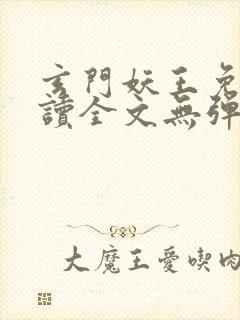 玄門妖王免
讀全文無彈
大魔王愛喫肉